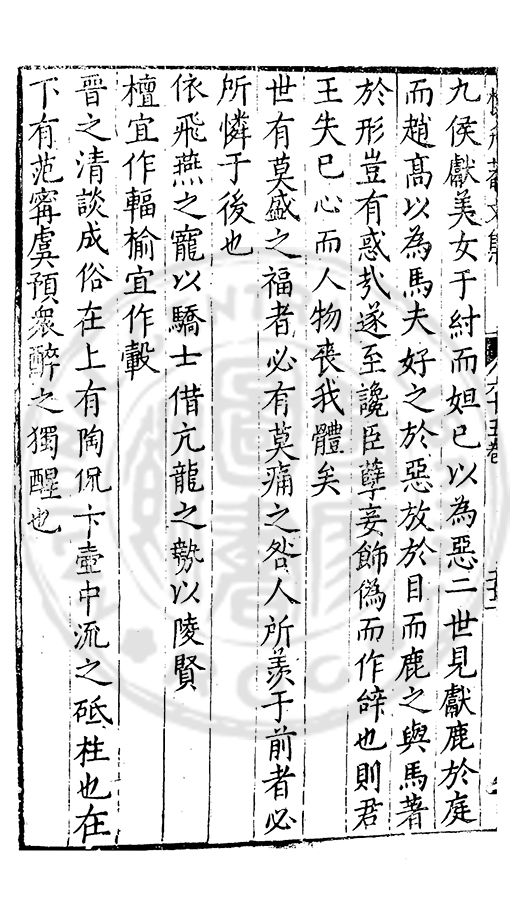 九侯獻美女于紂而妲已以為惡二世見獻鹿於庭
而趙高以為馬夫好之於惡放於目而鹿之與馬著
於形豈有惑㢤遂至讒臣孽妾飾偽而作辝也則君
王失已心而人物喪我體矣
世有莫盛之福者必有莫痛之咎人所羡于前者必
所憐于後也
依飛燕之寵以驕士借亢龍之勢以陵賢
檀宜作輻榆宜作轂
晉之清談成俗在上有陶侃卞壼中流之砥柱也在
下有范甯虞預衆醉之獨醒也